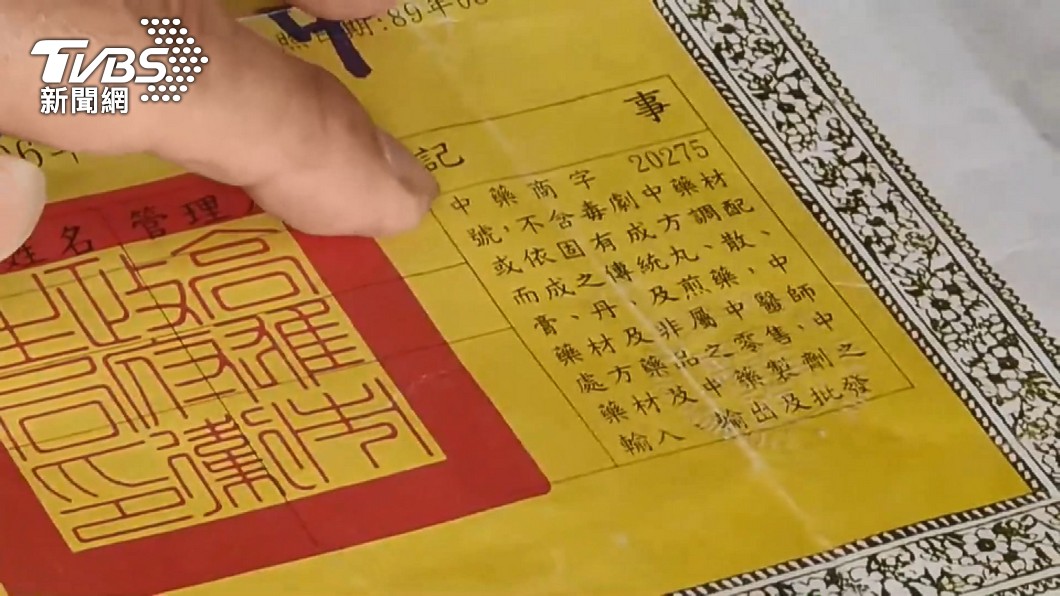 TVBS
新聞網
期:89年08
記 事
中藥商字 20275
號，不含毒劇中藥材
或依固有成方調配
而成之傳統丸、散、
膏、丹、及煎藥，中
藥材及非屬中醫師
處方藥品之零售，中
藥材及中藥製劑之
輸入、輸出及批發
姓名 管理
高雄市
政府衛
生局印